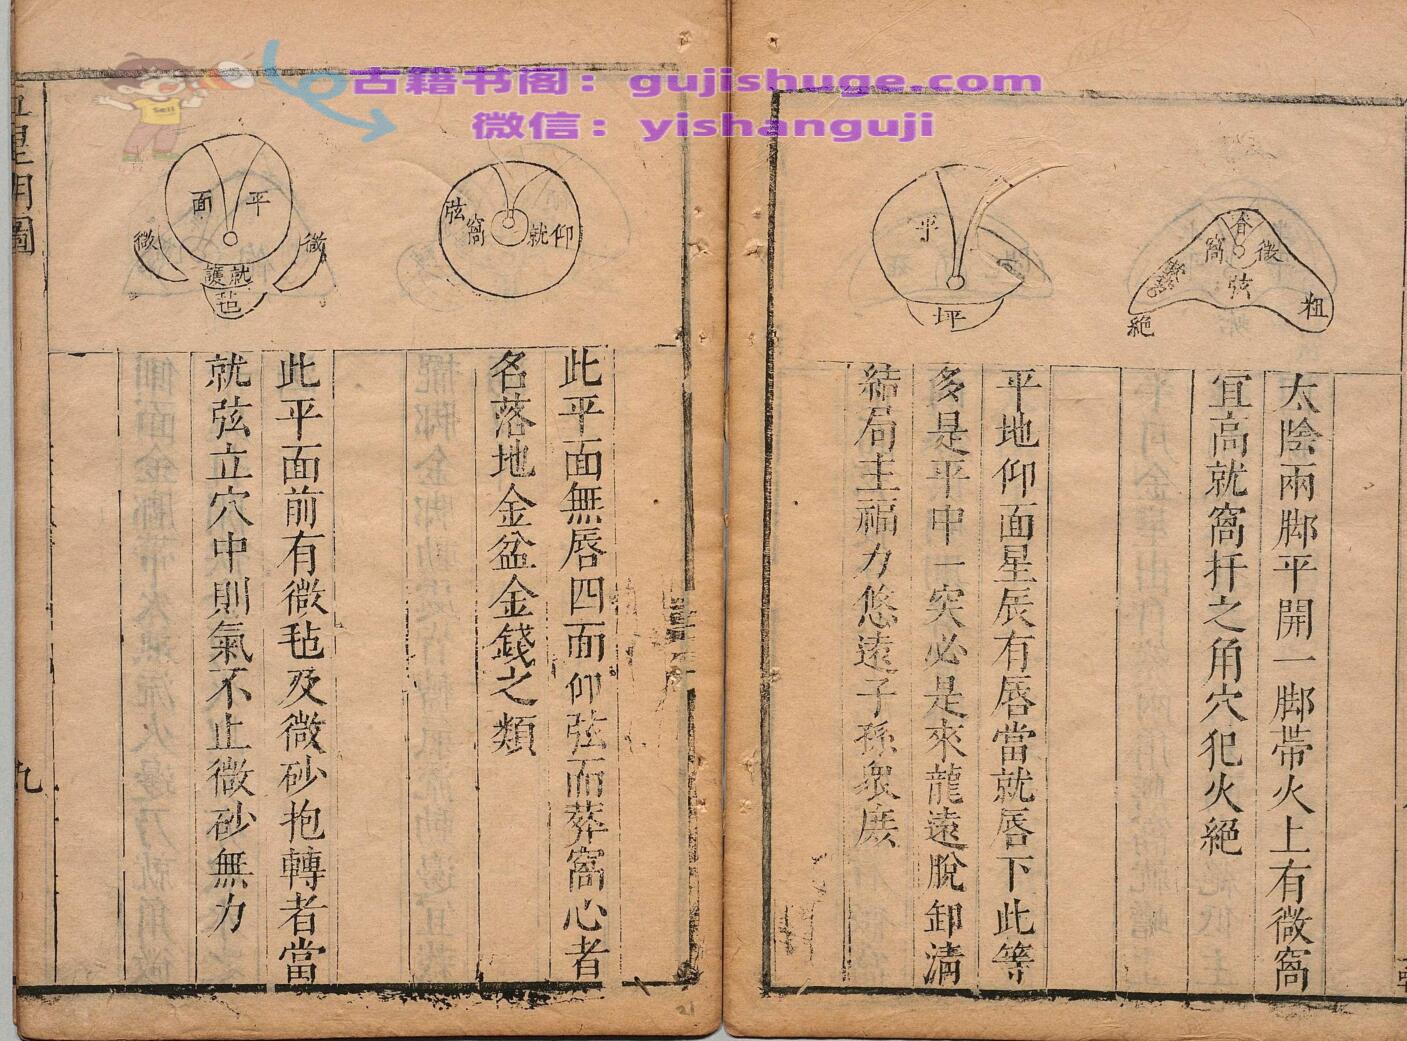 古籍书阁：gujishuge.com
微信：yishanguji
脊
窩
微
弦
粗
絕
太陰兩脚平開一脚帶火上有微窩
宜高就窩扦之角穴犯火絕
平
坪
平地仰面星辰有唇當就唇下此等
多是平中一突必是來龍遠脫卸清
結局主福力悠遠子孫衆庶
仰
就
窩
弦
此平面無唇四面仰弦而葬窩心者
名落地金盆金錢之類
平
面
微
微
就
護
毡
此平面前有微毡及微砂抱轉者當
就弦立穴中則氣不止微砂無力
五星明圖
九